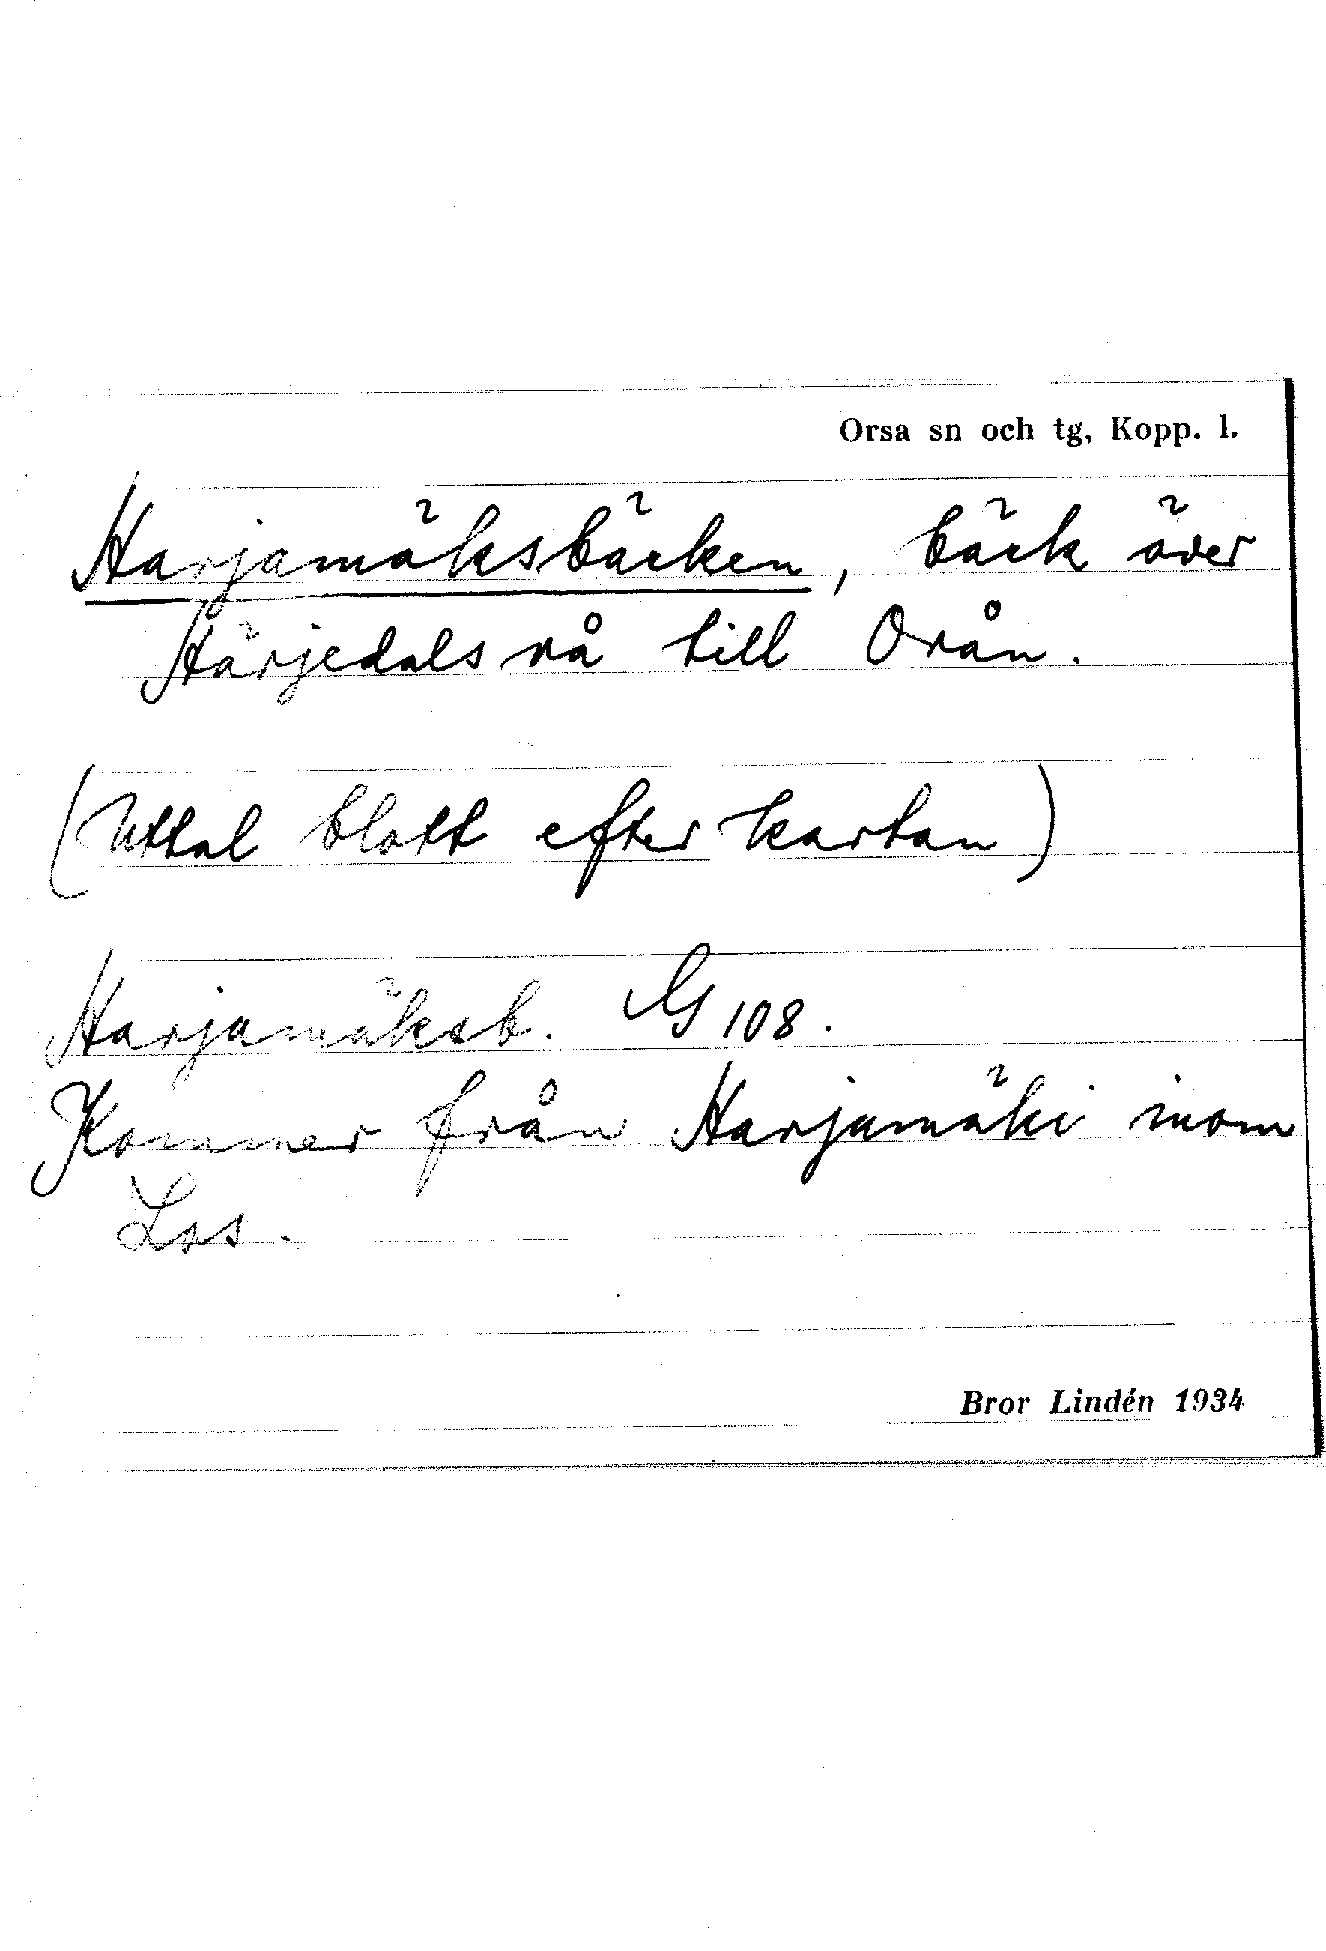 Orsa sn och tg, Kopp. l.
Harjamäksbäcken, bäck över
Härjedalsrå till Orån.
(Uttal blott efter kartan)
Harjamäksb. G 108.
Kommer från Harjamäki inom
Los.
Bror Lindén 1934